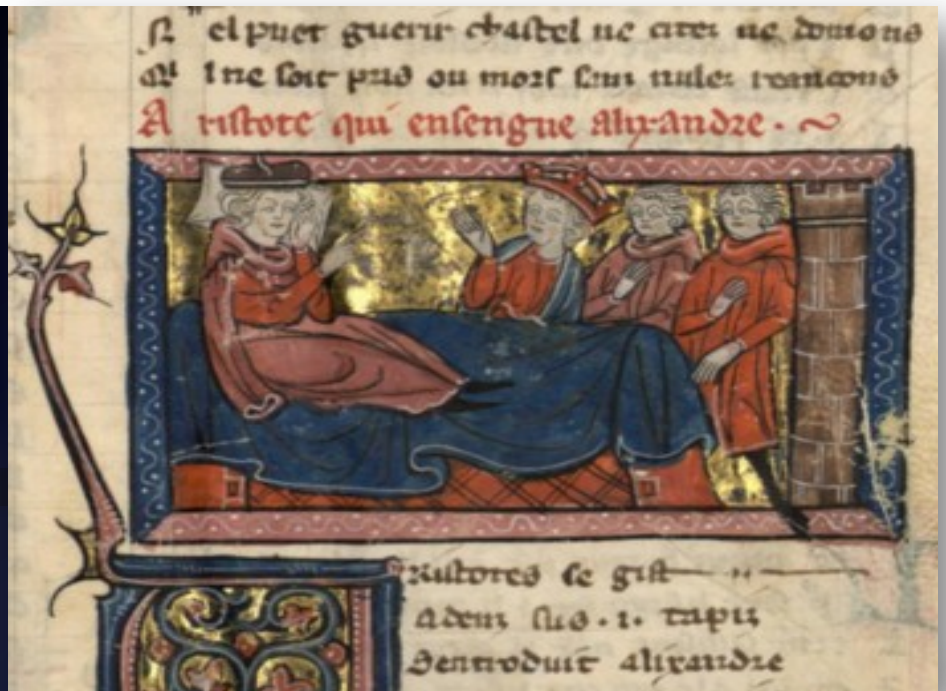 Si el puet guerir chastel ne citei ne doinons
Qu il ne soit pris ou mors sanz nulez reancons
A ristote qui ensengue alixandre . ~
Aristotes se gist
Adenz sus . i . tapiz
Sentroduit alixandre